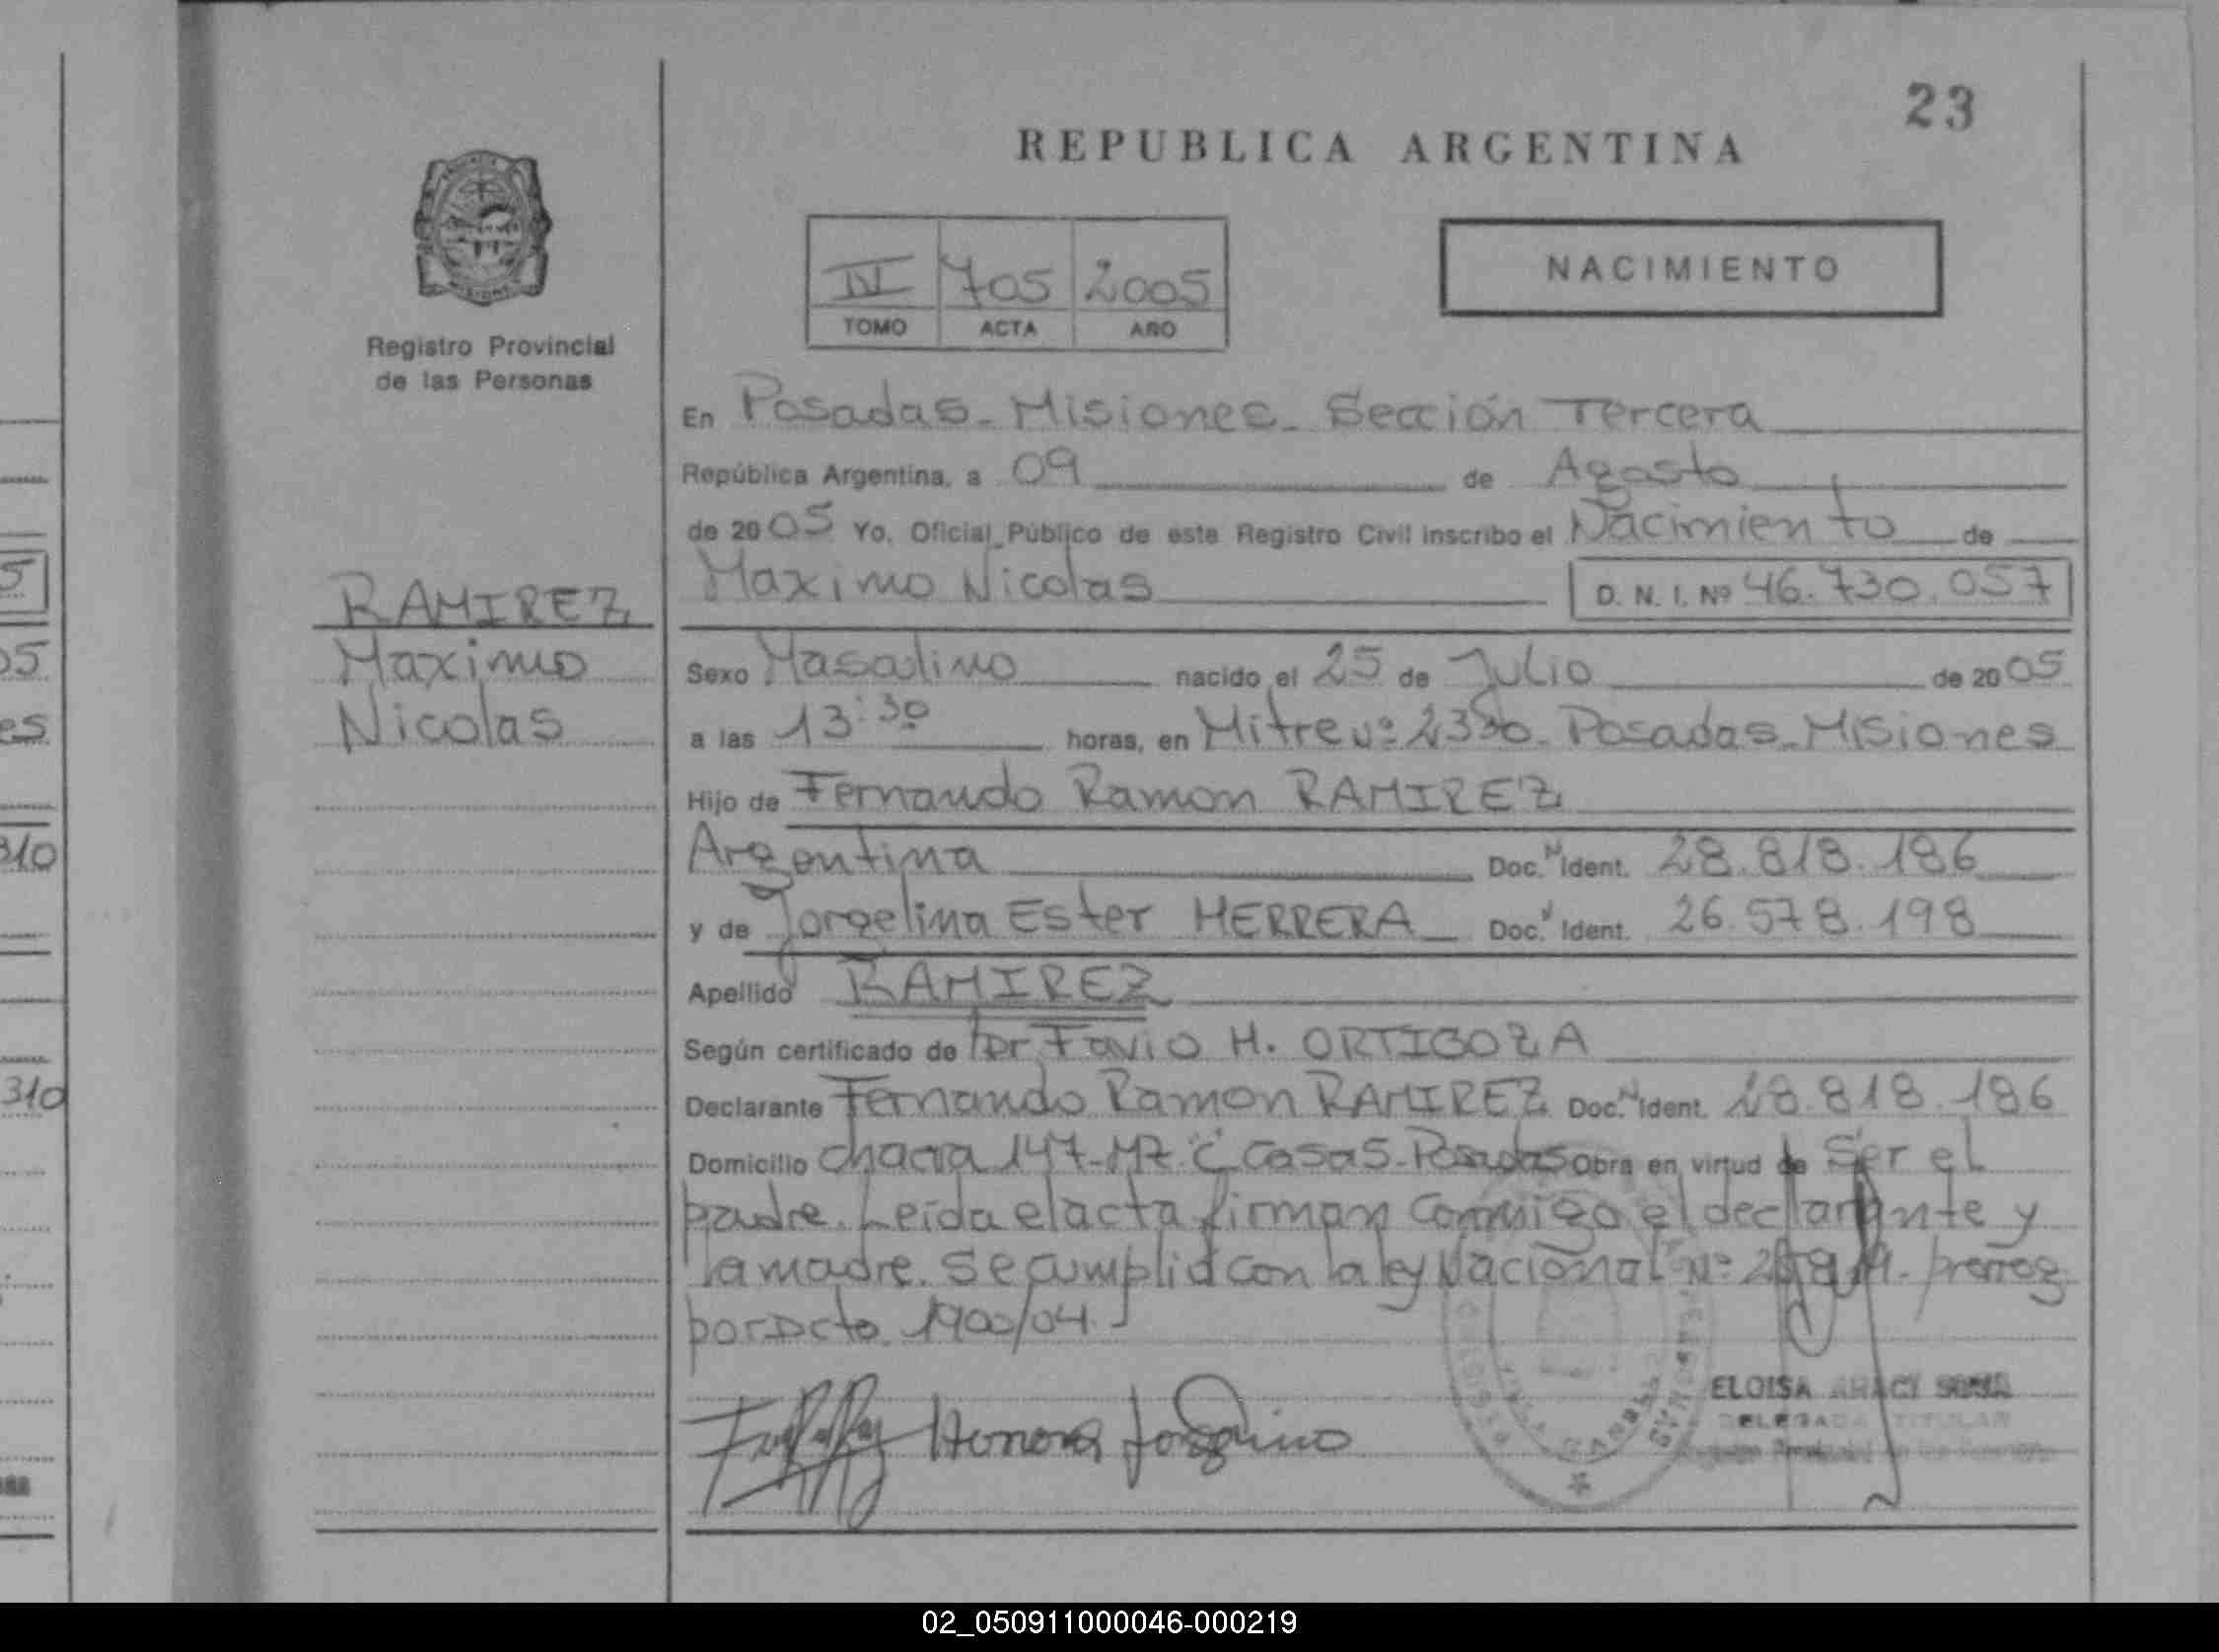 23
REPUBLICA ARGENTINA
NACIMIENTO
705 2005
TOMO ACTA AÑO
Registro Provincial
de las Personas
En Posadas - Misiones - Sección Tercera
República Argentina, a 09 de Agosto
de 2005 Yo, Oficial Público de este Registro Civil inscribo el Nacimiento de
Maximo Nicolas D. N. I. Nº 46.730.057
RAMIREZ
Maximo
Nicolas
Sexo Masculino nacido el 25 de Julio de 2005
a las 13:30 horas, en Mitre Nº 2350 - Posadas - Misiones
Hijo de Fernando Ramon RAMIREZ
Argentina Doc. Ident. 28.818.186
y de Jorgelina Ester HERRERA Doc. Ident. 26.578.198
Apellido RAMIREZ
Según certificado de Dr Favio H. ORTIGOZA
Declarante Fernando Ramon RAMIREZ Doc. Ident. 28.818.186
Domicilio chacra 147 - Mz. C Casa 5 - Posadas Obra en virtud de Ser el
padre. Leída el acta firman conmigo el declarante y
la madre. Se cumplió con la ley Nacional Nº prorrog
por Dcto. 1900/04.
ELOISA
DELEGADA TITULAR
02_050911000046-000219